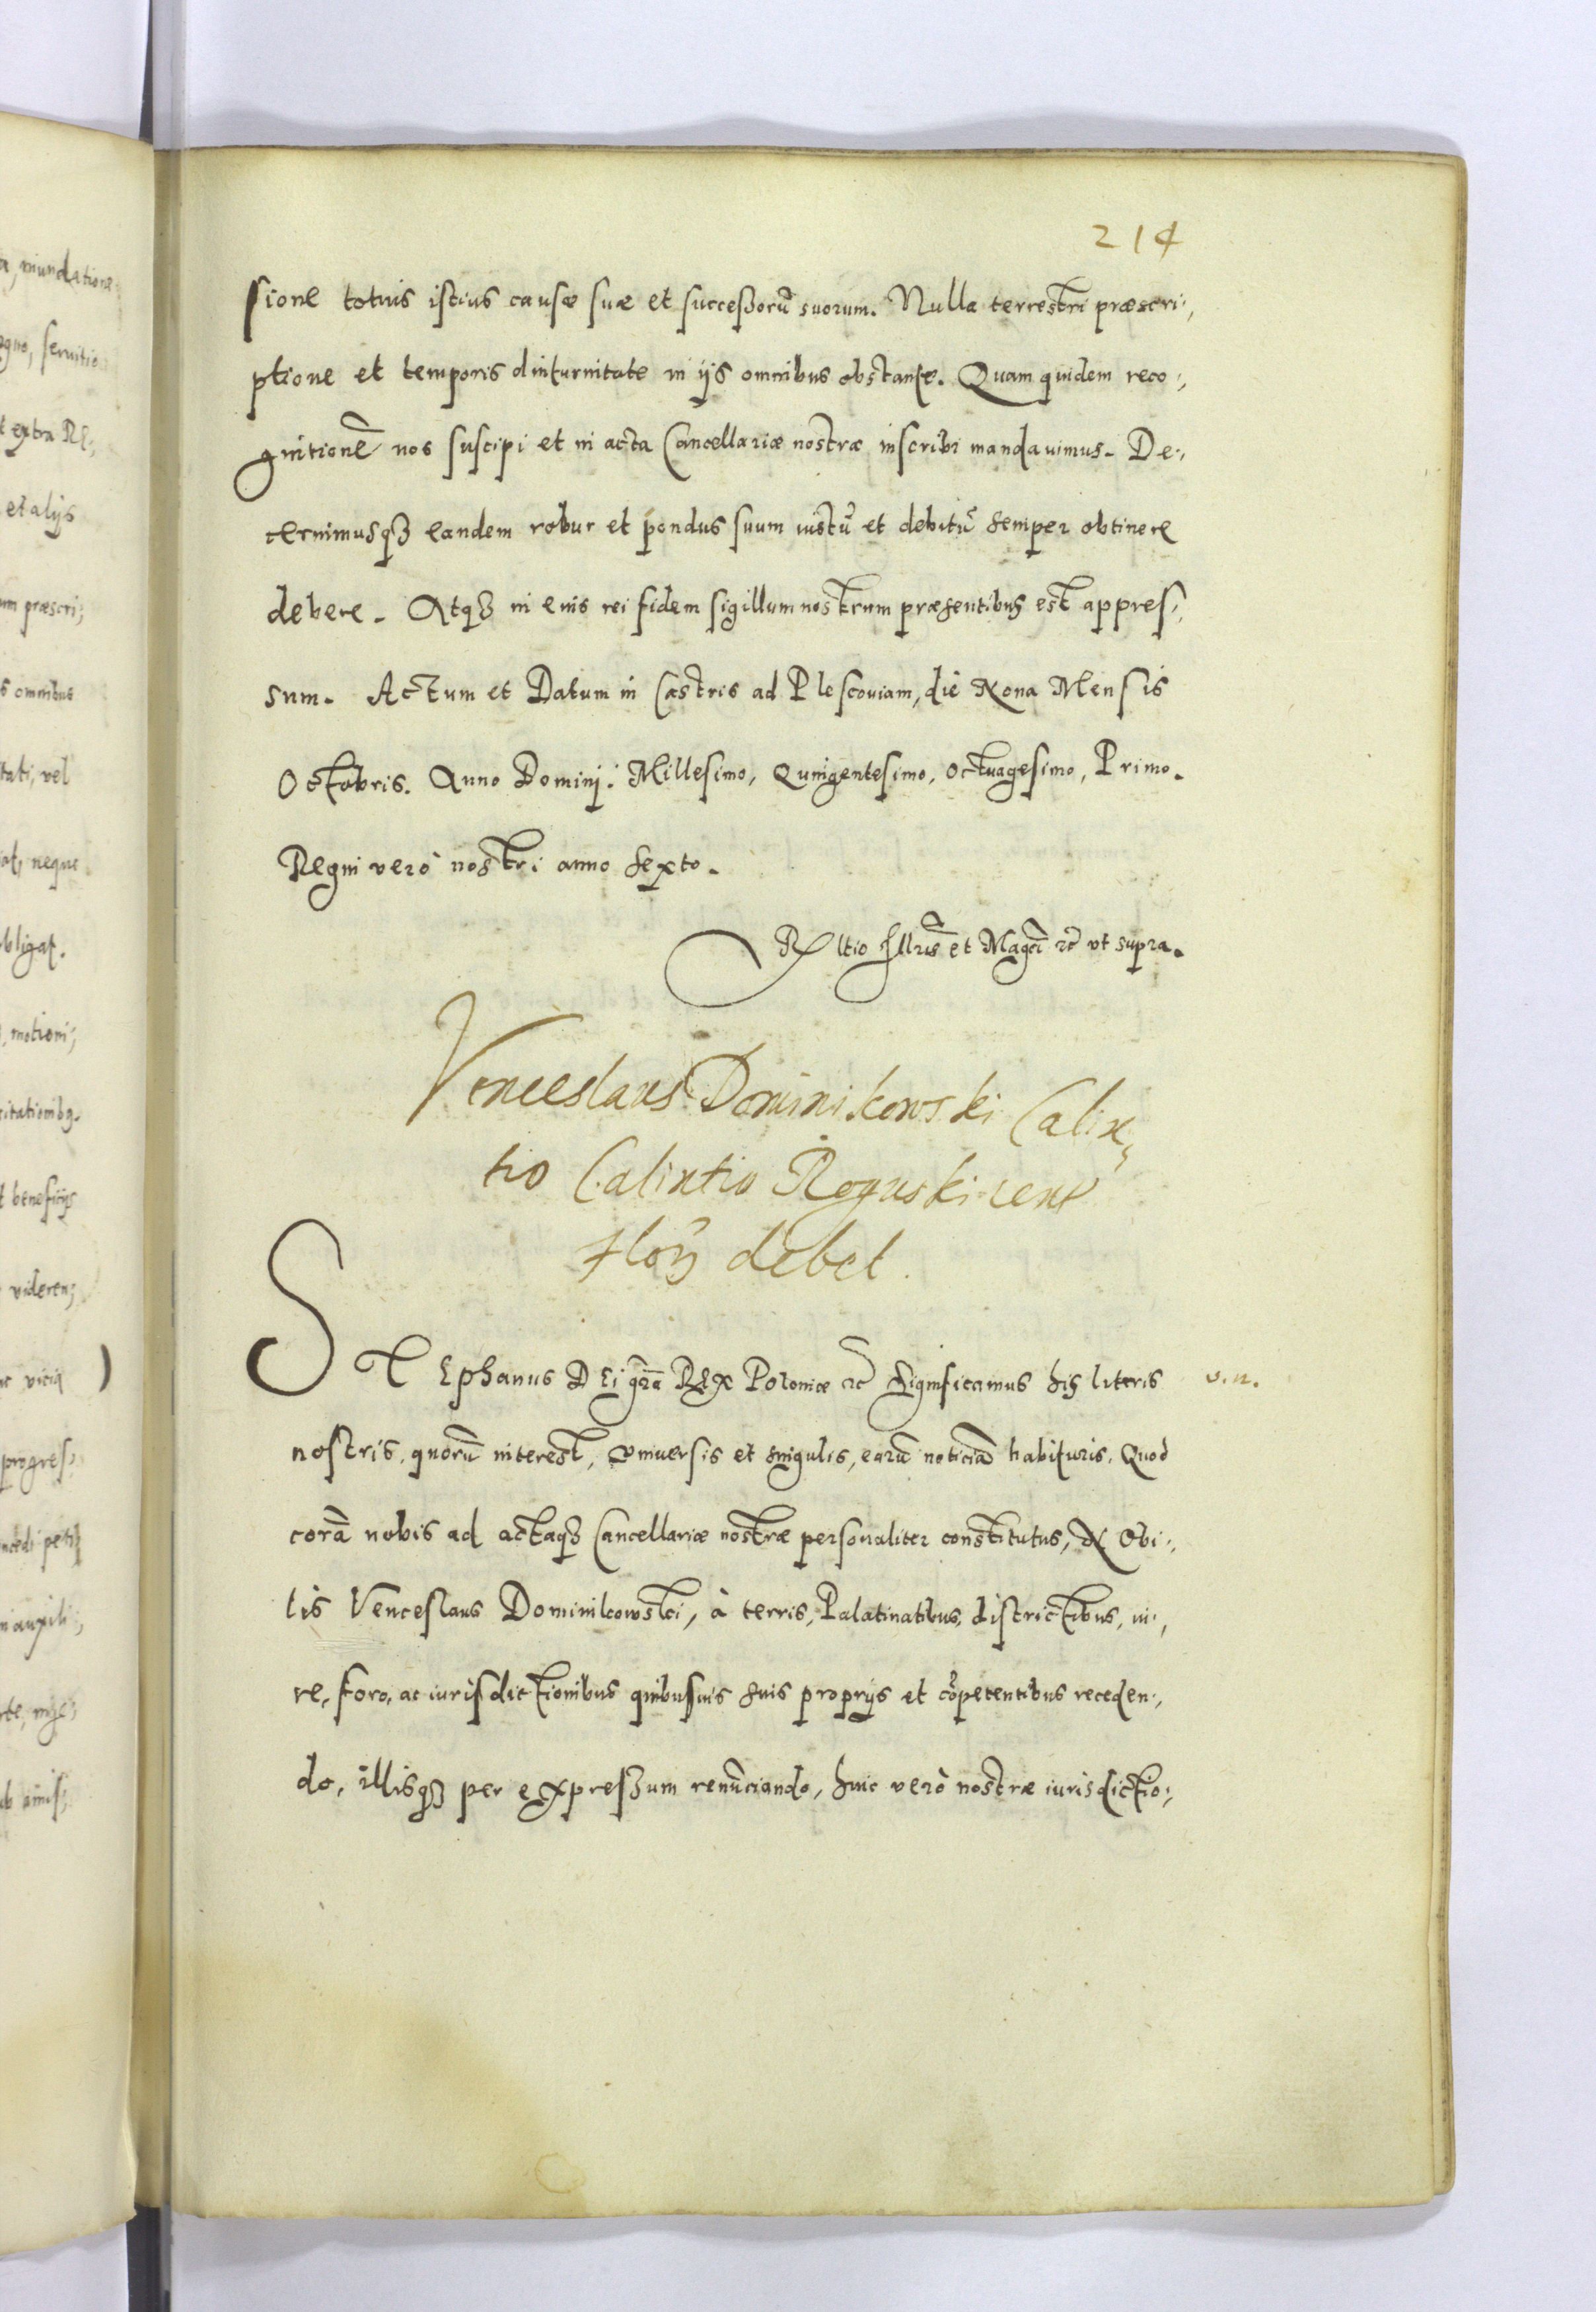 214
sione totius istius causæ suæ et succeßorũ suorum. Nulla terrestri præscri-,
ptione et temporis diuturnitate in ijs omnibus obstante. Quam quidem reco-,
gnitionẽ nos suscipi et in acta Cancellariæ nostræ inscribi mandauimus. De-,
cernimusqʒ eandem robur et pondus suum iustũ et debitũ semper obtinere
debere. Atqʒ in eius rei fidem sigillum nostrum præsentibus est appres-,
sum. Actum et Datum in Castris ad Plescouiam, die Nona Mensis
Octobris. Anno Dominj. Millesimo, Quingentesimo, Octuagesimo, Primo.
Regni verò nostri anno sexto.
Rltio Illris et Magci etc̃ vt supra.
Venceslaus Dominikowski Calix,
tio Calixtio Roguski cent
floʒ debet.
STEphanus DEi grã REx Poloniæ etc̃ Significamus his literis
v. n.
nostris, quorũ interest, vniuersis et singulis, earũ noticiã habituris. Quod
corã nobis ad actaqʒ Cancellariæ nostræ personaliter constitutus, N Obi-,
lis Venceslaus Dominikowski, à terris, Palatinatibus, districtibus, iu-,
re, foro, ac iurisdictionibus quibusuis suis proprijs et cõpetentibus receden-,
do, illisqʒ per expreßum renũciando, huic verò nostræ iurisdictio-,